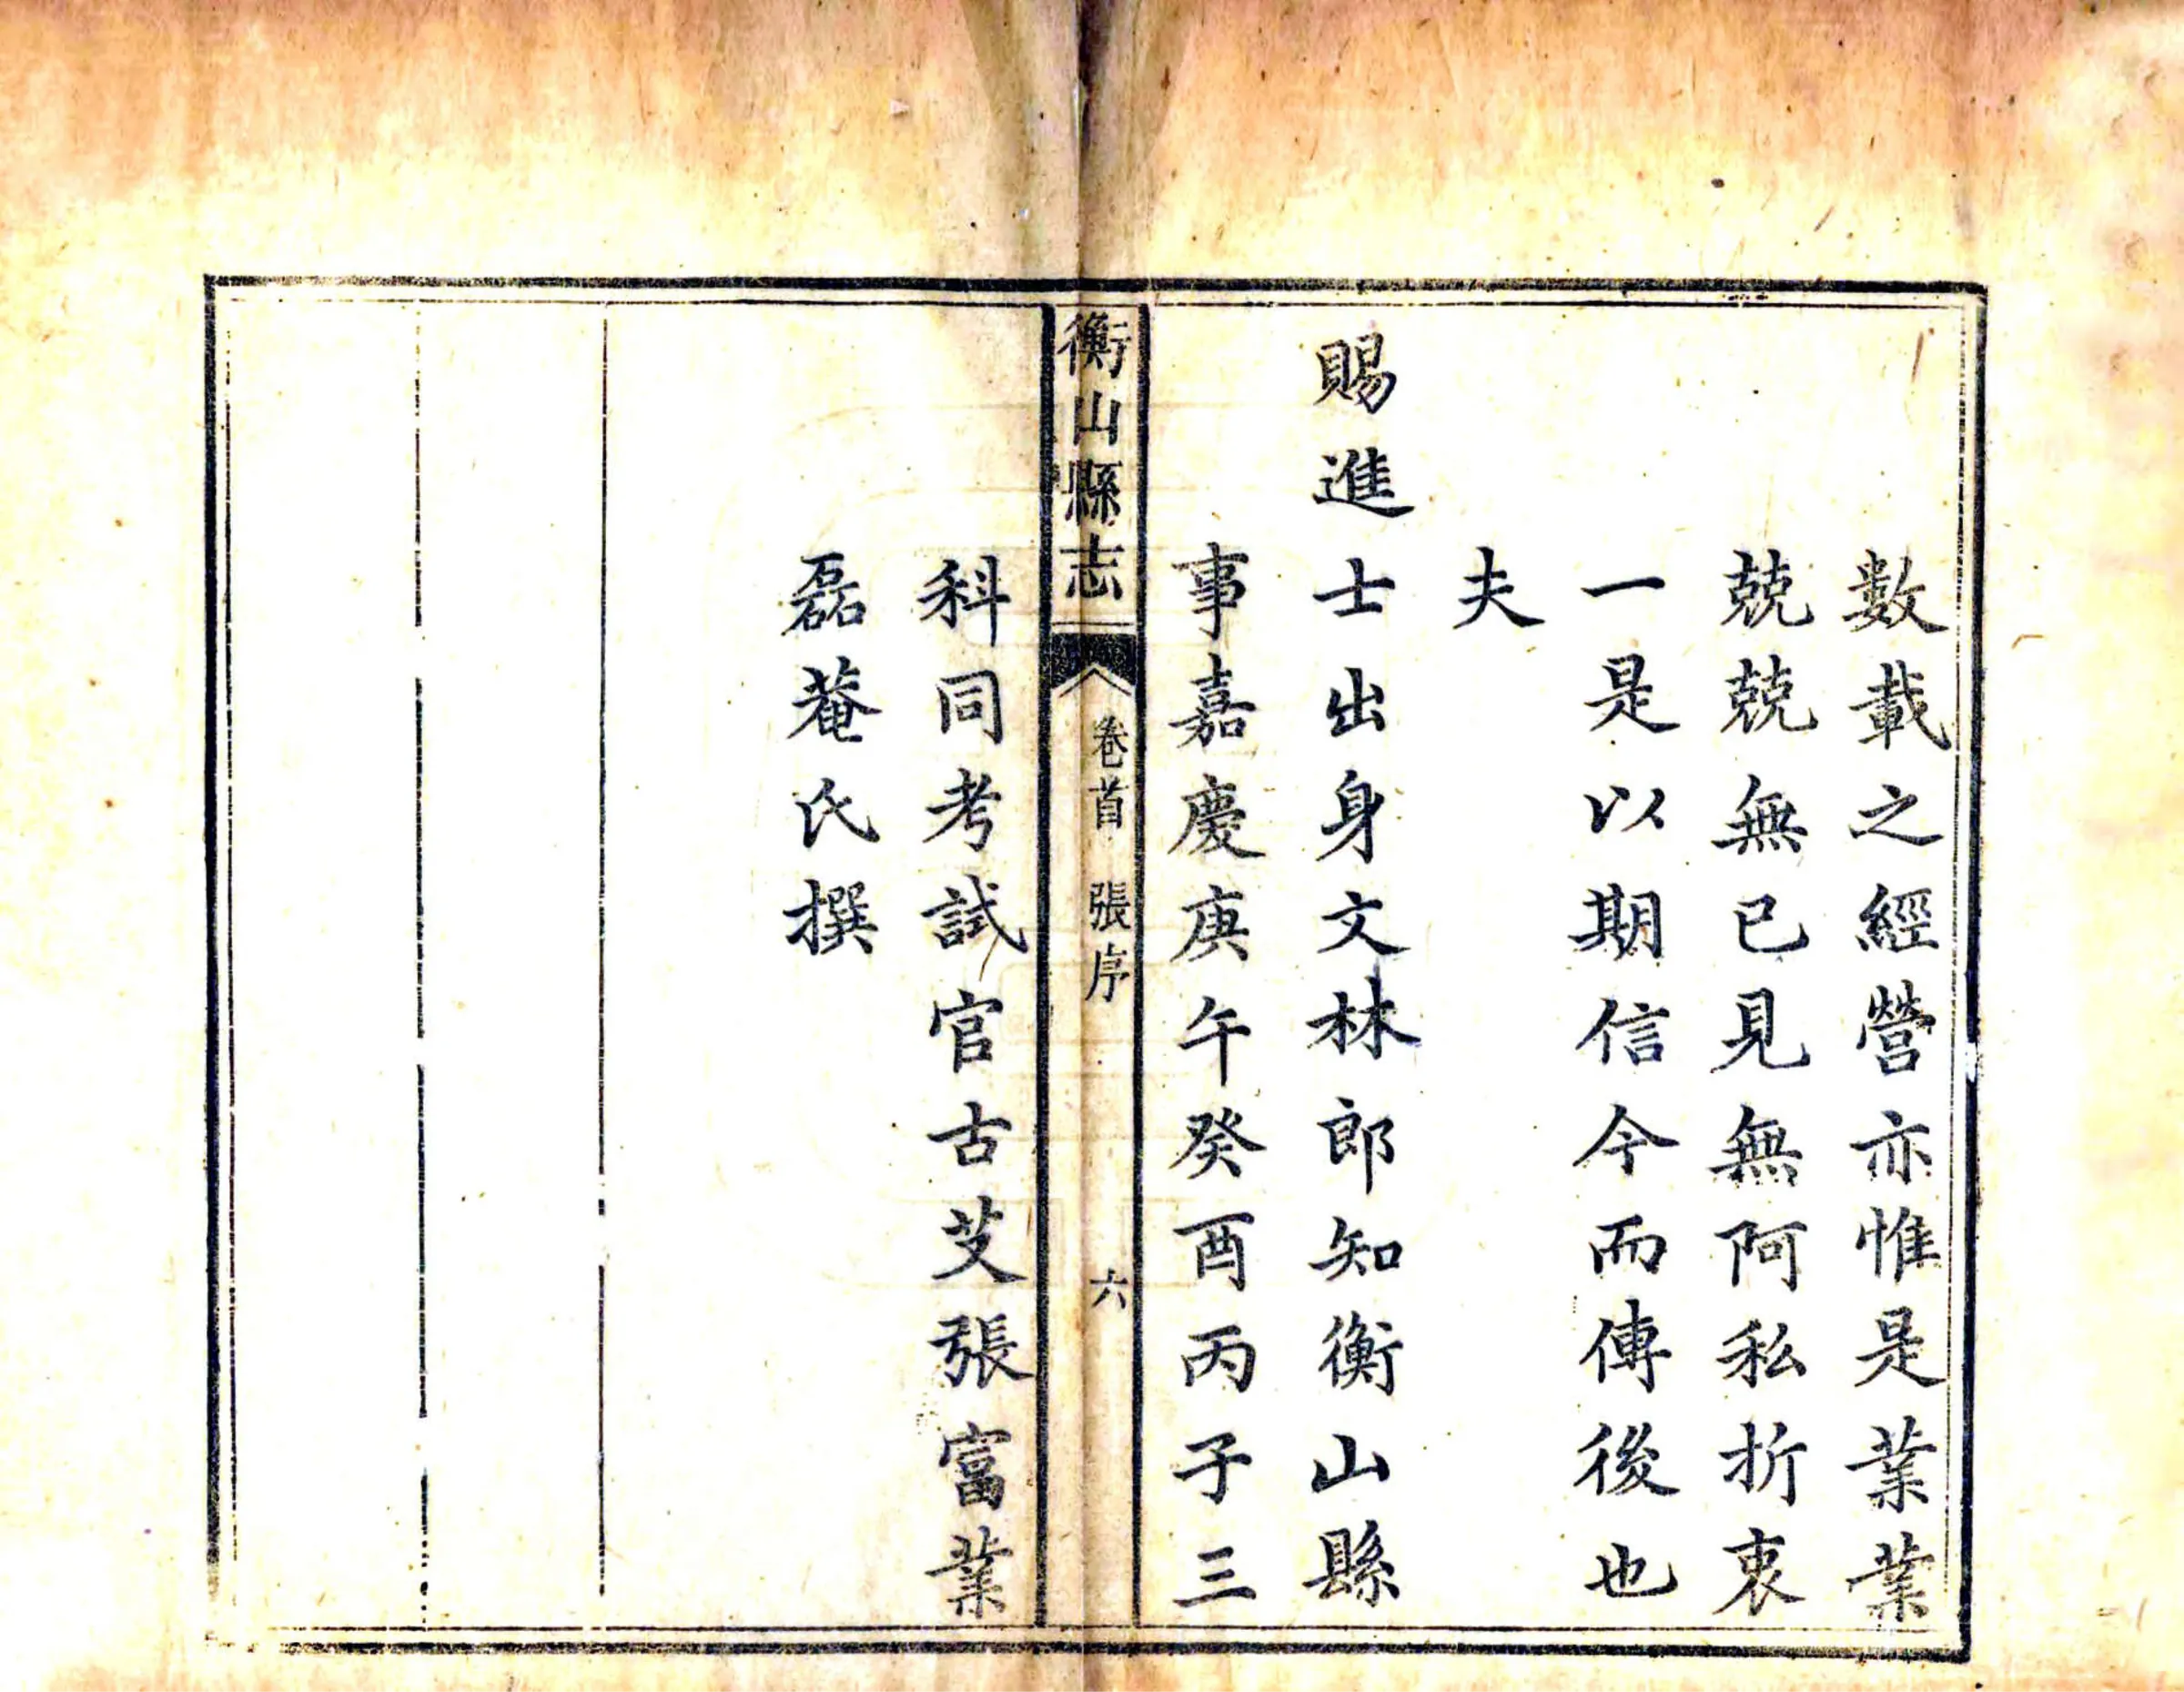 數載之經營亦惟是業業
兢兢無已見無阿私折衷
一是以期信今而傳後也
夫
賜進士出身文林郎知衡山縣
事嘉慶庚午癸酉丙子三
衡山縣志
卷首
張序
六
科同考試官古芝張富業
磊菴氏撰